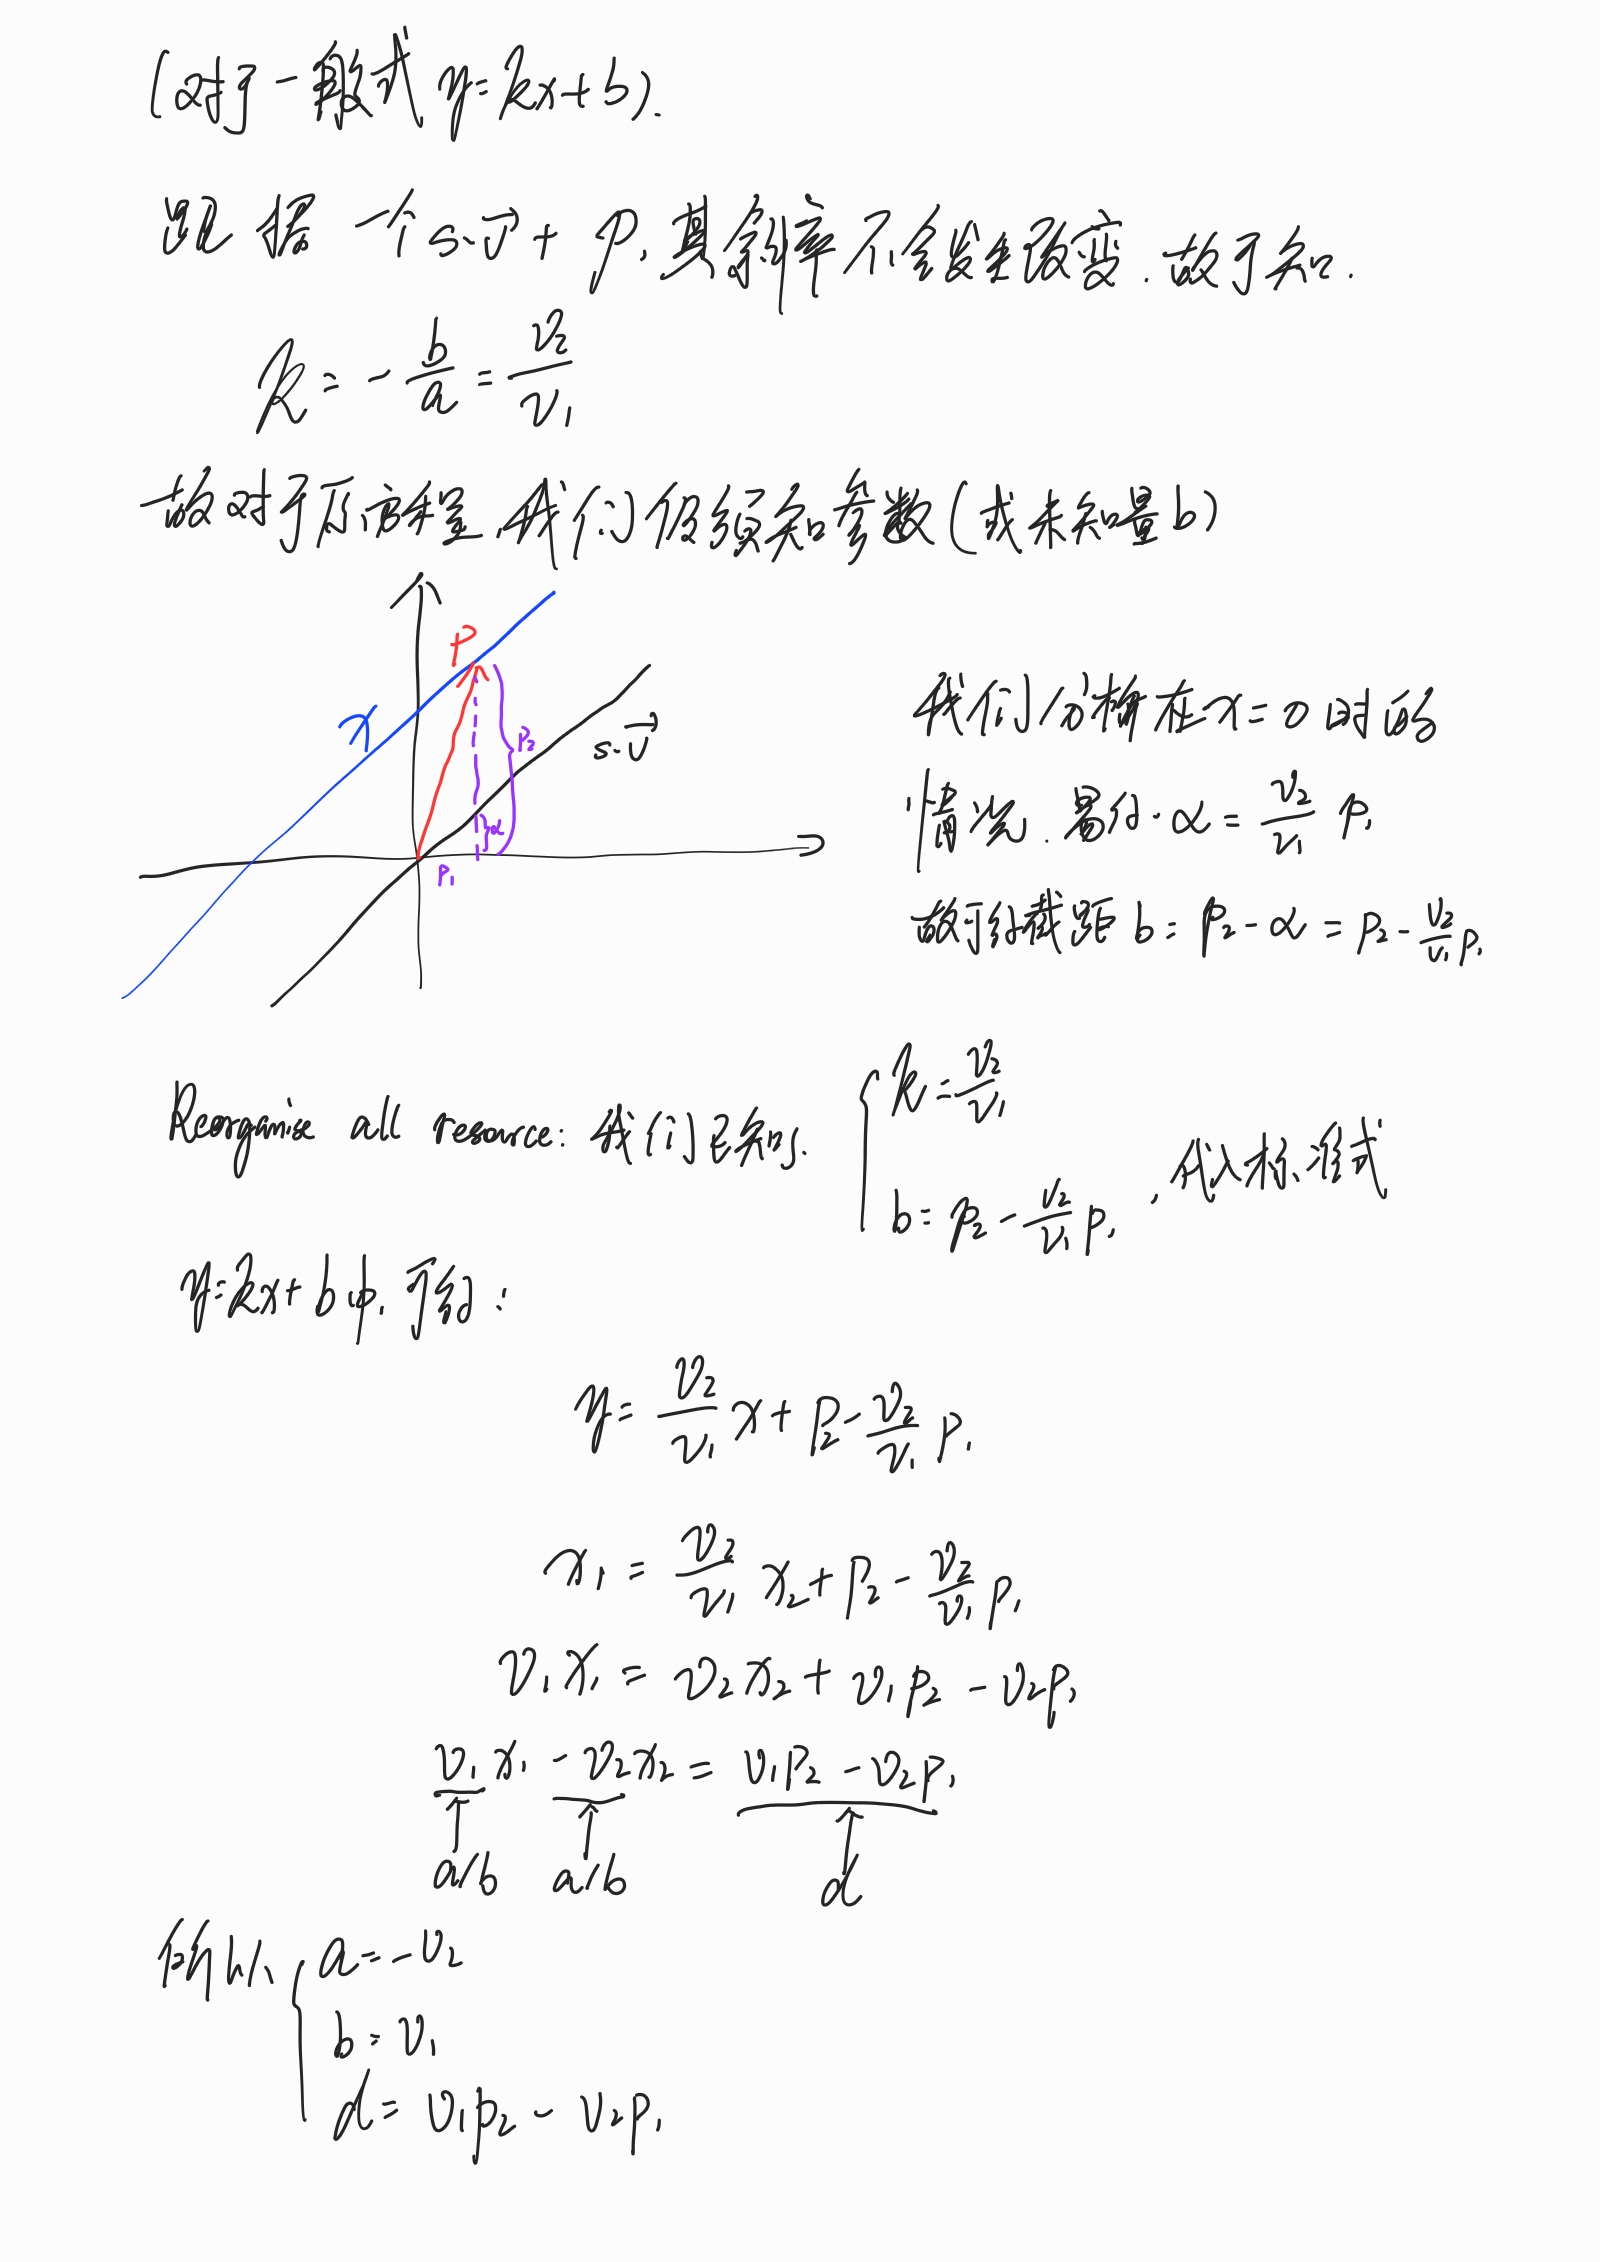 (对于一般式 y=kx+b).
跟据一个 s·v⃗ + p, 其斜率不会发生改变. 故可知.
k = -b/a = v₂/v₁
故对于原方程, 我们仍须知参数(或未知量 b)
P
x
P₂
s·v⃗
α
P₁
我们分析在 x=0 时的
情况. 易得. α = v₂/v₁ p₁
故可得截距 b = p₂-α = p₂ - v₂/v₁ p₁
Reorganise all resource: 我们已知了. { k = v₂/v₁
b = p₂ - v₂/v₁ p₁ , 代入标准式
y=kx+b中, 可得:
y = v₂/v₁ x + p₂ - v₂/v₁ p₁
x₁ = v₂/v₁ x₂ + p₂ - v₂/v₁ p₁
v₁x₁ = v₂x₂ + v₁p₂ - v₂p₁
v₁x₁ - v₂x₂ = v₁p₂ - v₂p₁
a/b a/b d
所以 { a = -v₂
b = v₁
d = v₁p₂ - v₂p₁